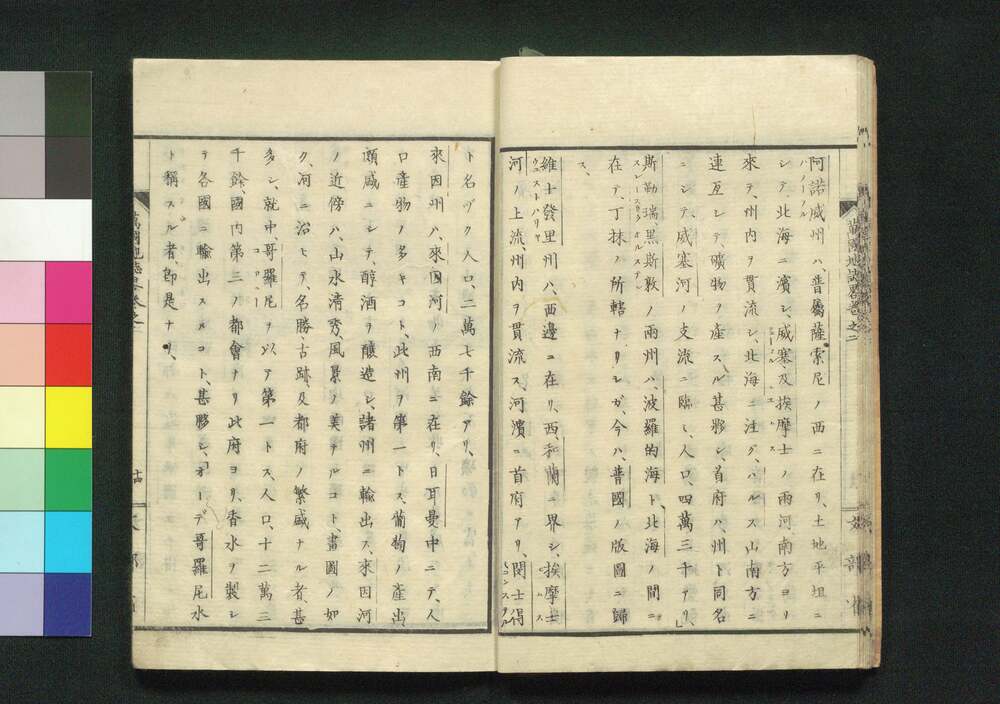 阿諾威州ハ、普屬薩索尼ノ西ニ在リ、土地平坦ニ
ハノーフル
シテ、北海ニ濱シ、威塞、及挨摩士ノ兩河、南方ヨリ
來テ、州内ヲ貫流シ、北海ニ注グ、ハルス山南方ニ
連亙シテ、礦物ヲ產スル甚夥シ、首府ハ、州ト同名
ニシテ、威塞河ノ支流ニ臨ミ、人口、四萬三千アリ、
斯勒瑞黑斯敦ノ兩州ハ、波羅的海ト、北海ノ間ニ
在テ、丁抹ノ所轄ナリシガ、今ハ、普國ノ版圖ニ歸
ス、
維士發里州ハ、西邊ニ在リ、西、和蘭ニ界シ、挨摩士
ウエストハリヤ
河ノ上流、州内ヲ貫流ス、河濱ニ首府アリ、閔士得
ト名ヅク人口、二萬七千餘アリ、
來因州ハ、來因河ノ西南ニ在リ、日耳曼中ニテ、人
口產物ノ多キコト、此州ヲ第一トス、葡萄ノ產出、
頗盛ニシテ、醇酒ヲ釀造シ、諸州ニ輸出ス、來因河
ノ近傍ハ、山水清秀、風景ノ美ナルコト、畫圖ノ如
ク、河ニ沿ヒテ、名勝、古跡、及都府ノ繁盛ナル者甚
多シ、就中哥羅尼ヲ以テ第一トス、人口、十二萬三
千餘、國内第三ノ都會ナリ此府ヨリ、香水ヲ製シ
テ各國ニ輸出スルコト、甚夥シ、オーデ哥羅尼水
ト稱スル者、卽是ナリ、